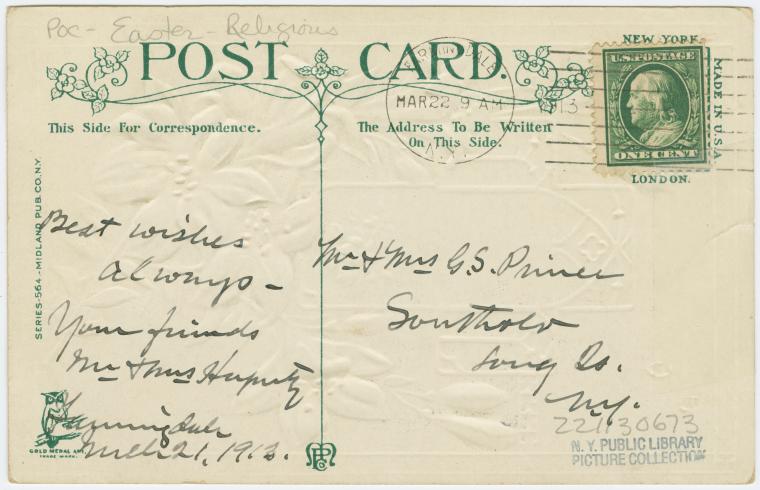 Pac - Easter - Religious
POST CARD.
NEW YORK
U.S. POSTAGE
ONE CENT
MADE IN U.S.A.
LONDON.
FARMINGDALE
MAR 22 9 AM
1913
N.Y.
This Side For Correspondence.
The Address To Be Written
On This Side.
SERIES-564-MIDLAND PUB. CO. N.Y.
Best wishes
always -
Your friends
Mr & Mrs
Farmingdale
Mch 21, 1913.
GOLD MEDAL ART
TRADE MARK.
Mr & Mrs G. S. Prince
Southold
Long Is.
N.Y.
221130673
N.Y. PUBLIC LIBRARY
PICTURE COLLECTION